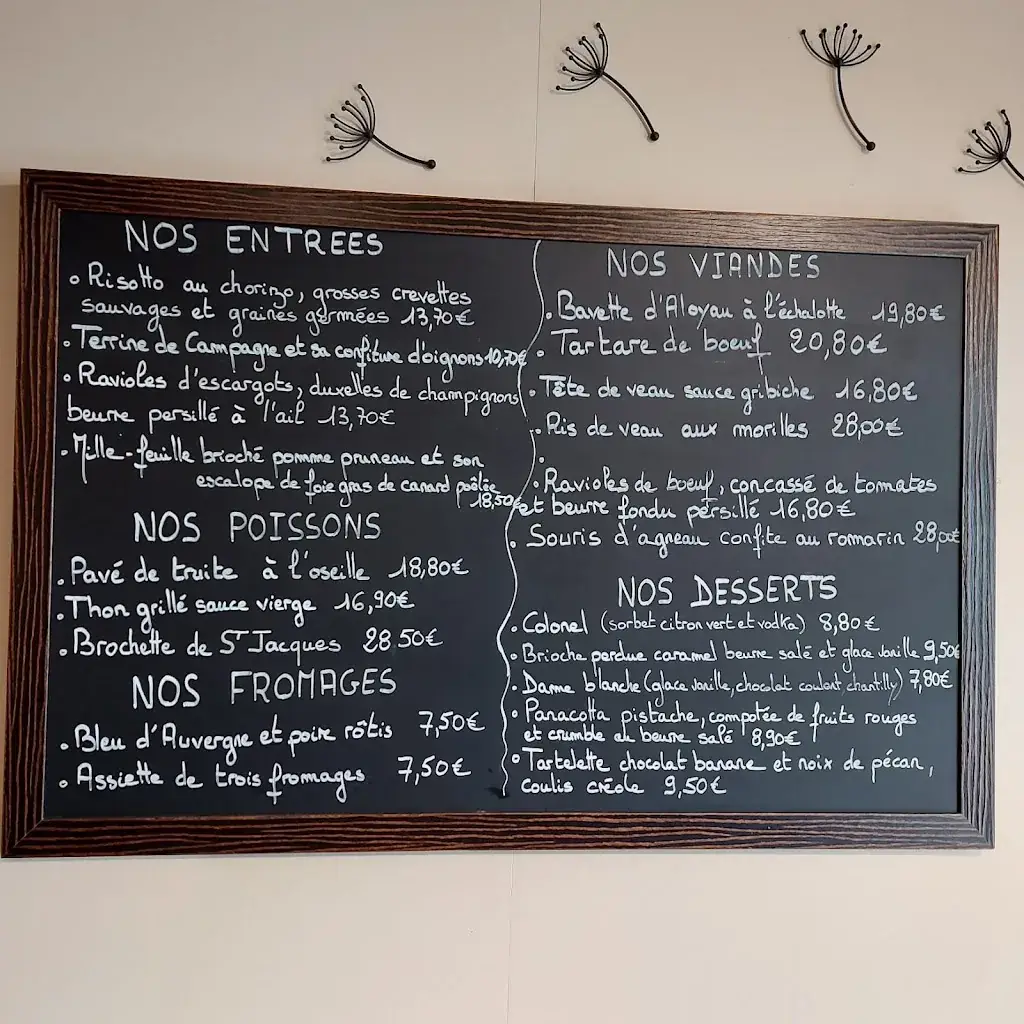 NOS ENTREES
• Risotto au chorizo, grosses crevettes
sauvages et graines germées 13,70€
• Terrine de Campagne et sa confiture d'oignons 10,70€
• Ravioles d'escargots, duxelles de champignons
beurre persillé à l'ail 13,70€
• Mille-feuille brioché pomme pruneau et son
escalope de foie gras de canard poêlée
18,50€
NOS POISSONS
• Pavé de truite à l'oseille 18,80€
• Thon grillé sauce vierge 16,90€
• Brochette de St Jacques 28.50€
NOS FROMAGES
• Bleu d'Auvergne et poire rôtis 7,50€
• Assiette de trois fromages 7,50€
NOS VIANDES
• Bavette d'Aloyau à l'échalotte 19,80€
• Tartare de boeuf 20,80€
• Tête de veau sauce gribiche 16,80€
• Ris de veau aux morilles 28,00€
•
• Ravioles de boeuf, concassé de tomates
et beurre fondu persillé 16,80€
• Souris d'agneau confite au romarin 28,00€
NOS DESSERTS
• Colonel (sorbet citron vert et vodka) 8,80€
• Brioche perdue caramel beurre salé et glace vanille 9,50€
• Dame blanche (glace vanille, chocolat coulant, chantilly) 7,80€
• Panacotta pistache, compotée de fruits rouges
et crumble au beurre salé 8,90€
• Tartelette chocolat banane et noix de pécan,
coulis créole 9,50€